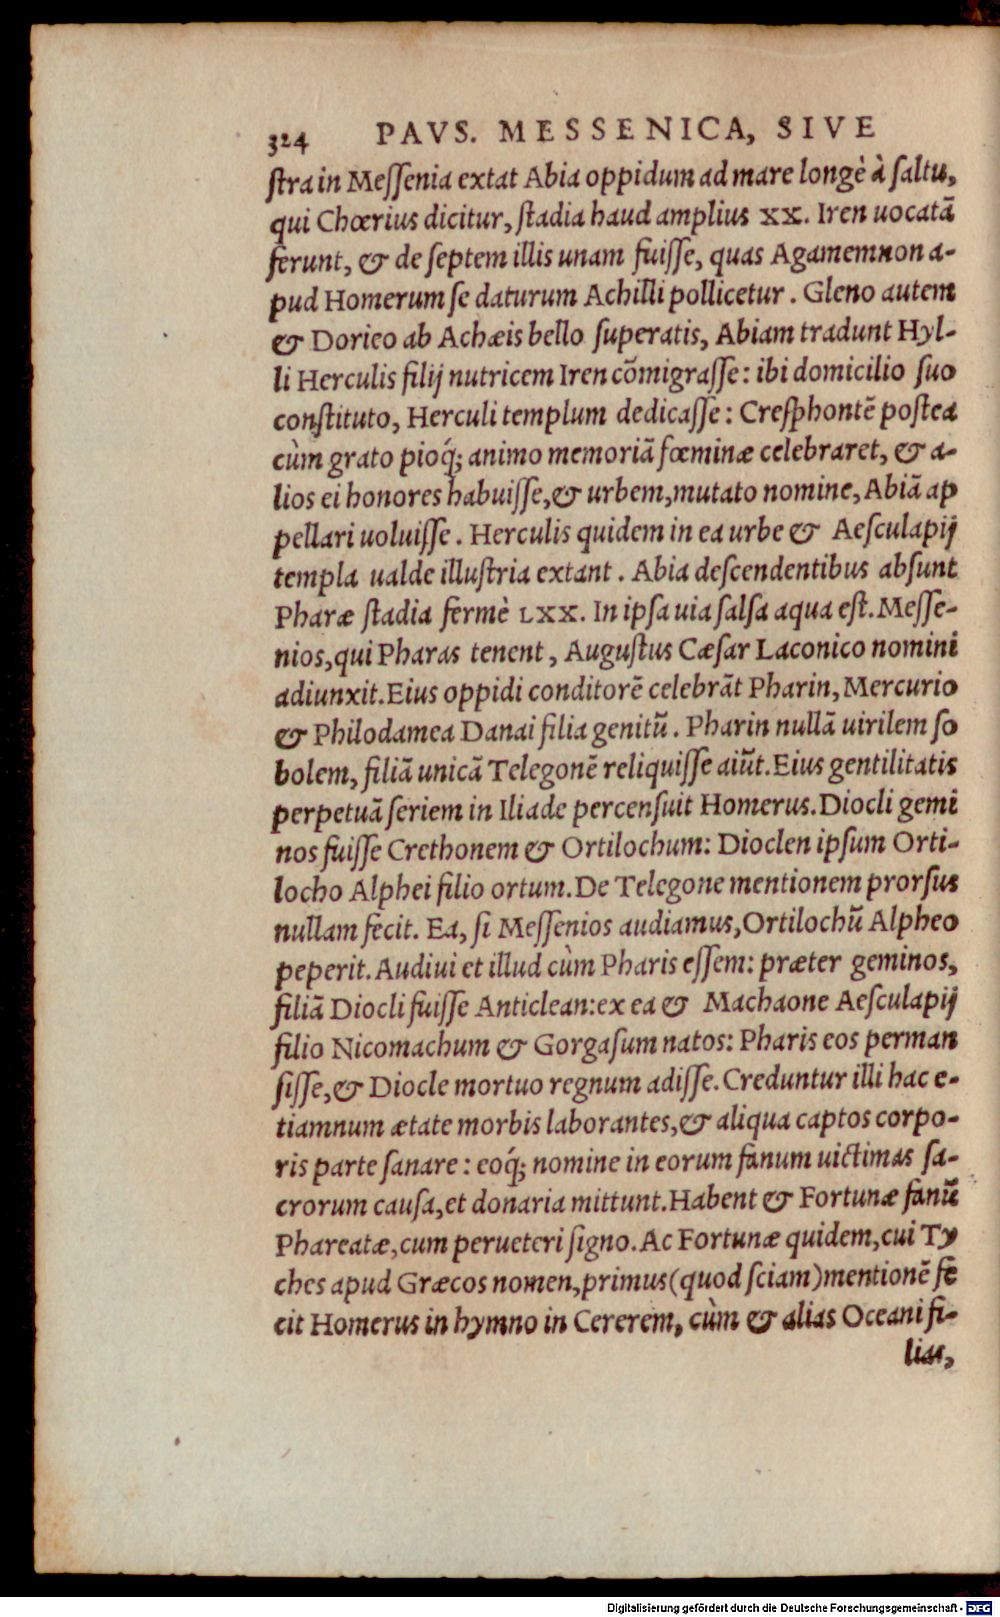 324 PAVS. MESSENICA, SIVE
ſtra in Meſſenia extat Abia oppidum ad mare longè à ſaltu,
qui Chœrius dicitur, ſtadia haud amplius XX. Iren uocatā
ferunt, & de ſeptem illis unam fuiſſe, quas Agamemnon a-
pud Homerum ſe daturum Achilli pollicetur. Gleno autem
& Dorieo ab Achæis bello ſuperatis, Abiam tradunt Hyl-
li Herculis filij nutricem Iren cōmigraſſe: ibi domicilio ſuo
conſtituto, Herculi templum dedicaſſe: Creſphontē poſtea
cùm grato pioq́; animo memoriā fœminæ celebraret, & a-
lios ei honores habuiſſe, & urbem, mutato nomine, Abiā ap
pellari uoluiſſe. Herculis quidem in ea urbe & Aeſculapij
templa ualde illuſtria extant. Abia deſcendentibus abſunt
Pharæ ſtadia fermè LXX. In ipſa uia ſalſa aqua eſt. Meſſe-
nios, qui Pharas tenent, Auguſtus Cæſar Laconico nomini
adiunxit. Eius oppidi conditorē celebrāt Pharin, Mercurio
& Philodamea Danai filia genitū. Pharin nullā uirilem ſo
bolem, filiā unicā Telegonē reliquiſſe aiūt. Eius gentilitatis
perpetuā ſeriem in Iliade percenſuit Homerus. Diocli gemi
nos fuiſſe Crethonem & Ortilochum: Dioclen ipſum Orti-
locho Alphei filio ortum. De Telegone mentionem prorſus
nullam fecit. Ea, ſi Meſſenios audiamus, Ortilochū Alpheo
peperit. Audiui et illud cùm Pharis eſſem: præter geminos,
filiā Diocli fuiſſe Anticlean: ex ea & Machaone Aeſculapij
filio Nicomachum & Gorgaſum natos: Pharis eos perman
ſiſſe, & Diocle mortuo regnum adiſſe. Creduntur illi hac e-
tiamnum ætate morbis laborantes, & aliqua captos corpo-
ris parte ſanare: eoq́; nomine in eorum fanum uictimas ſa-
crorum cauſa, et donaria mittunt. Habent & Fortunæ fanū
Phareatæ, cum perueteri ſigno. Ac Fortunæ quidem, cui Ty
ches apud Græcos nomen, primus (quod ſciam) mentionē fe
cit Homerus in hymno in Cererem, cùm & alias Oceani fi-
lias,
Digitalisierung gefördert durch die Deutsche Forschungsgemeinschaft - DFG